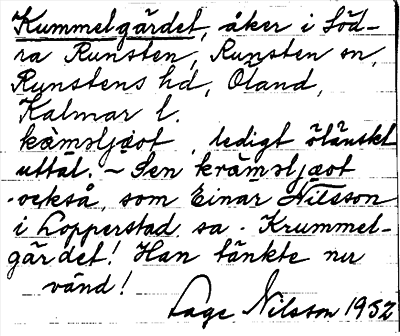 Kummelgärdet, åker i Söd-
ra Runsten, Runsten sn,
Runstens hd, Öland,
Kalmar l.
ledigt öländskt
uttal. – Sen
också, som Einar Nilsson
i Lopperstad sa. Krummel-
gärdet! Han tänkte nu
vänd!
Lage Nilsson 1952